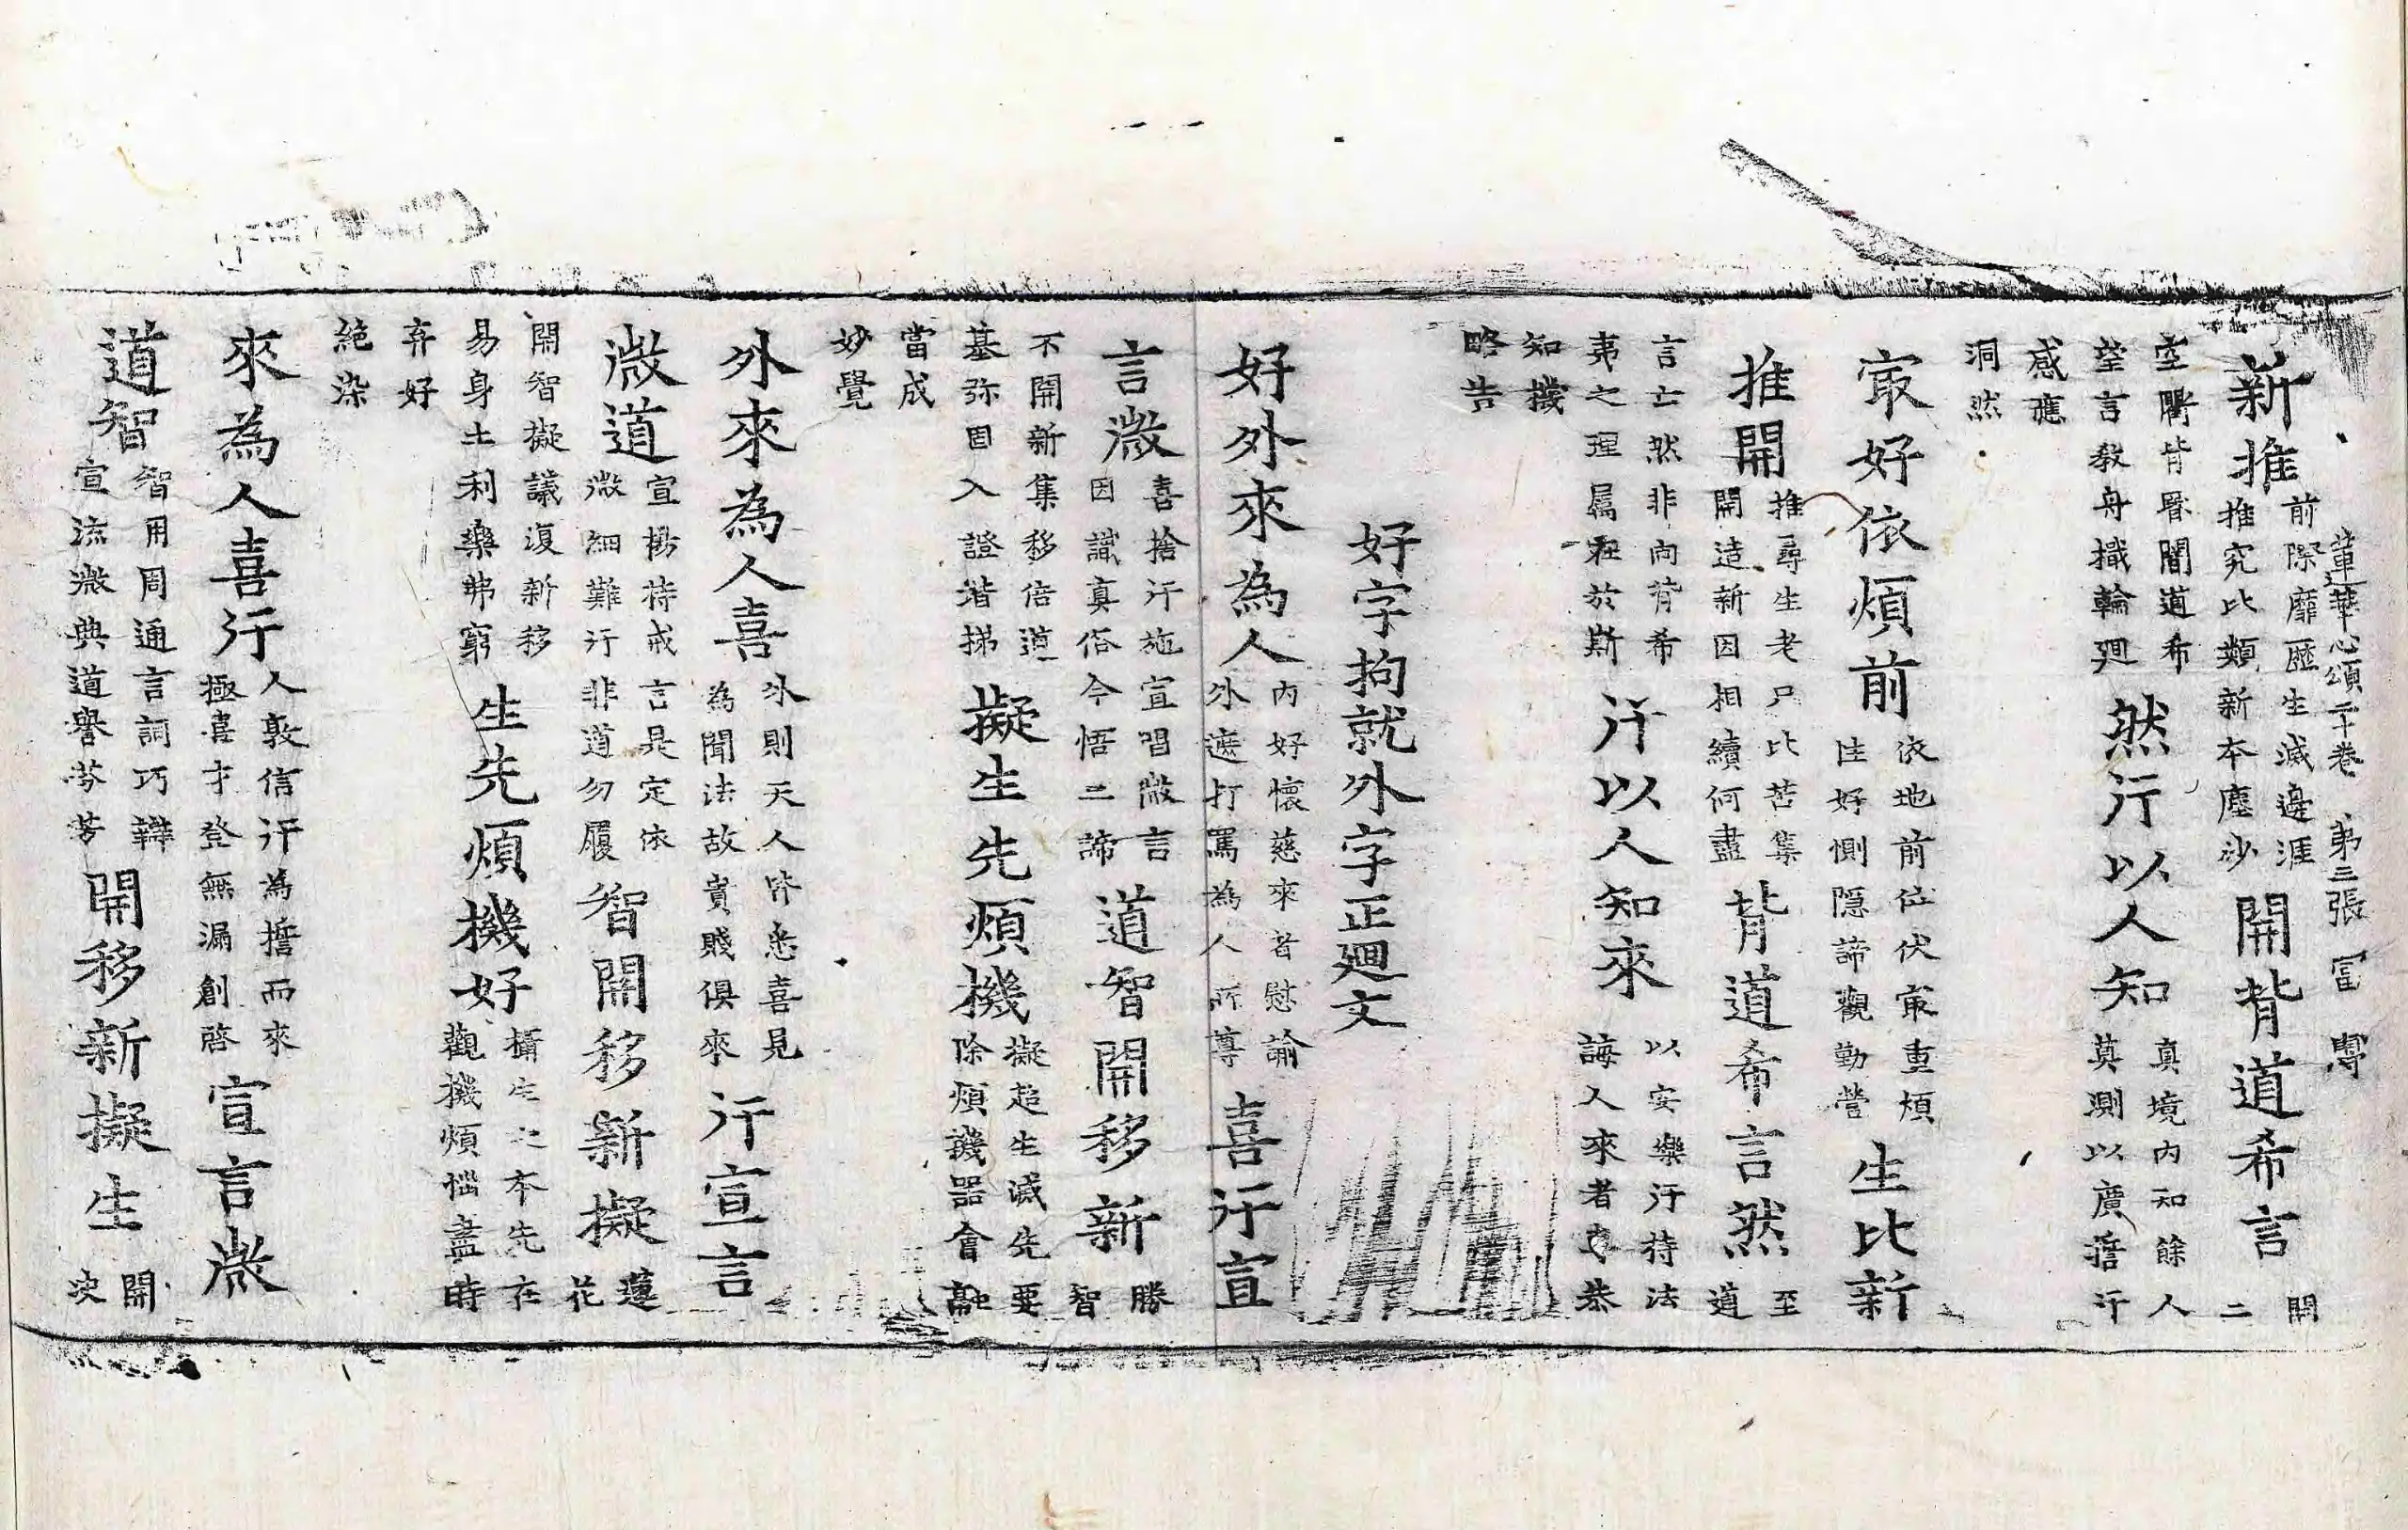 蓮華心頌二十卷　第三張　冨
新推　前際靡歷生滅邊涯　推究比類新本塵沙　開背道希言　開　二
空關皆翳闇道希　望言教舟檝輪廻　然行以人知　真境內知餘人　莫測以廣擔行
感應
洞然
㝡好依煩前　依地前位伏㝡重煩　住好惻隱諦觀勤營　生比新
推開　推尋生老尸比苦集　開造新因相續何盡　背道希言然　至　道
言亡然非向背希　夷之理属在於斯　行以人知來　以安樂行持法　誨人來者恭
知機
略告
好字拘就外字正廻文
好外來為人　內好懷慈來者慰諭　外遮打罵為人所尊　喜行宣
言微　喜捨行施宣唱微言　因識真俗今悟二諦　道智開移新　勝　智
不開新集移倍道　基弥固入證階梯　擬生先煩機　擬超生滅先要　除煩譏器會融
當成
妙覺
外來為人喜　外則天人皆悉喜見　為聞法故貴賤俱來　行宣言
微道　宣揚持戒言是定依　微細難行非道勿履　智開移新擬　蓮　花
開智擬議復新移　易身土利樂弗窮　生先煩機好　生之本先在　觀機煩惱盡時
弃好
絕染
來為人喜行　人敦信行為擔而來　極喜才登無漏創啓　宣言微
道智　智用周通言詞巧辯　宣流微典道譽芬芳　開移新擬生　開　決